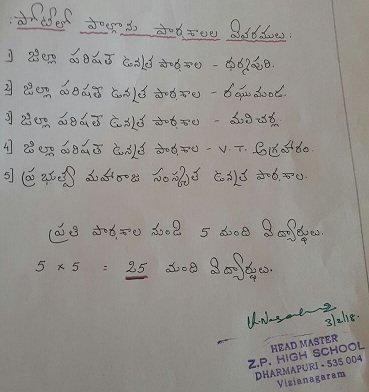 :పోటీలో పాల్గొను పాఠశాలల వివరములు:
1) జిల్లా పరిషత్ ఉన్నత పాఠశాల - ధర్మపురి.
2) జిల్లా పరిషత్ ఉన్నత పాఠశాల - రఘుమండ.
3) జిల్లా పరిషత్ ఉన్నత పాఠశాల - మలిచర్ల.
4) జిల్లా పరిషత్ ఉన్నత పాఠశాల - V.T. అగ్రహారం.
5) ప్రభుత్వ మహారాజ సంస్కృత ఉన్నత పాఠశాల.
ప్రతి పాఠశాల నుండి 5 మంది విద్యార్థులు.
5 × 5 = 25 మంది విద్యార్థులు.
3/2/18.
HEAD MASTER
Z.P. HIGH SCHOOL
DHARMAPURI - 535 004
Vizianagaram